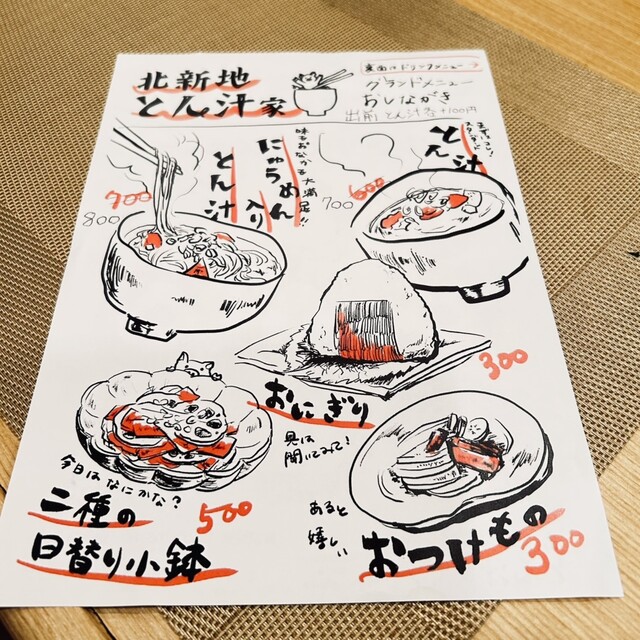 北新地
とん汁家
裏面はドリンクメニュー
グランドメニュー
おしながき
出前 とん汁各+100円
味もおなかも大満足!!
にゅうめん
入り
とん汁
700
800
まずはコレ!
スタンダード
とん汁
600
700
おにぎり
300
具は
聞いてみて!
今日はなにかな?
二種の
日替り小鉢
500
あると
嬉しい
おつけもの
300